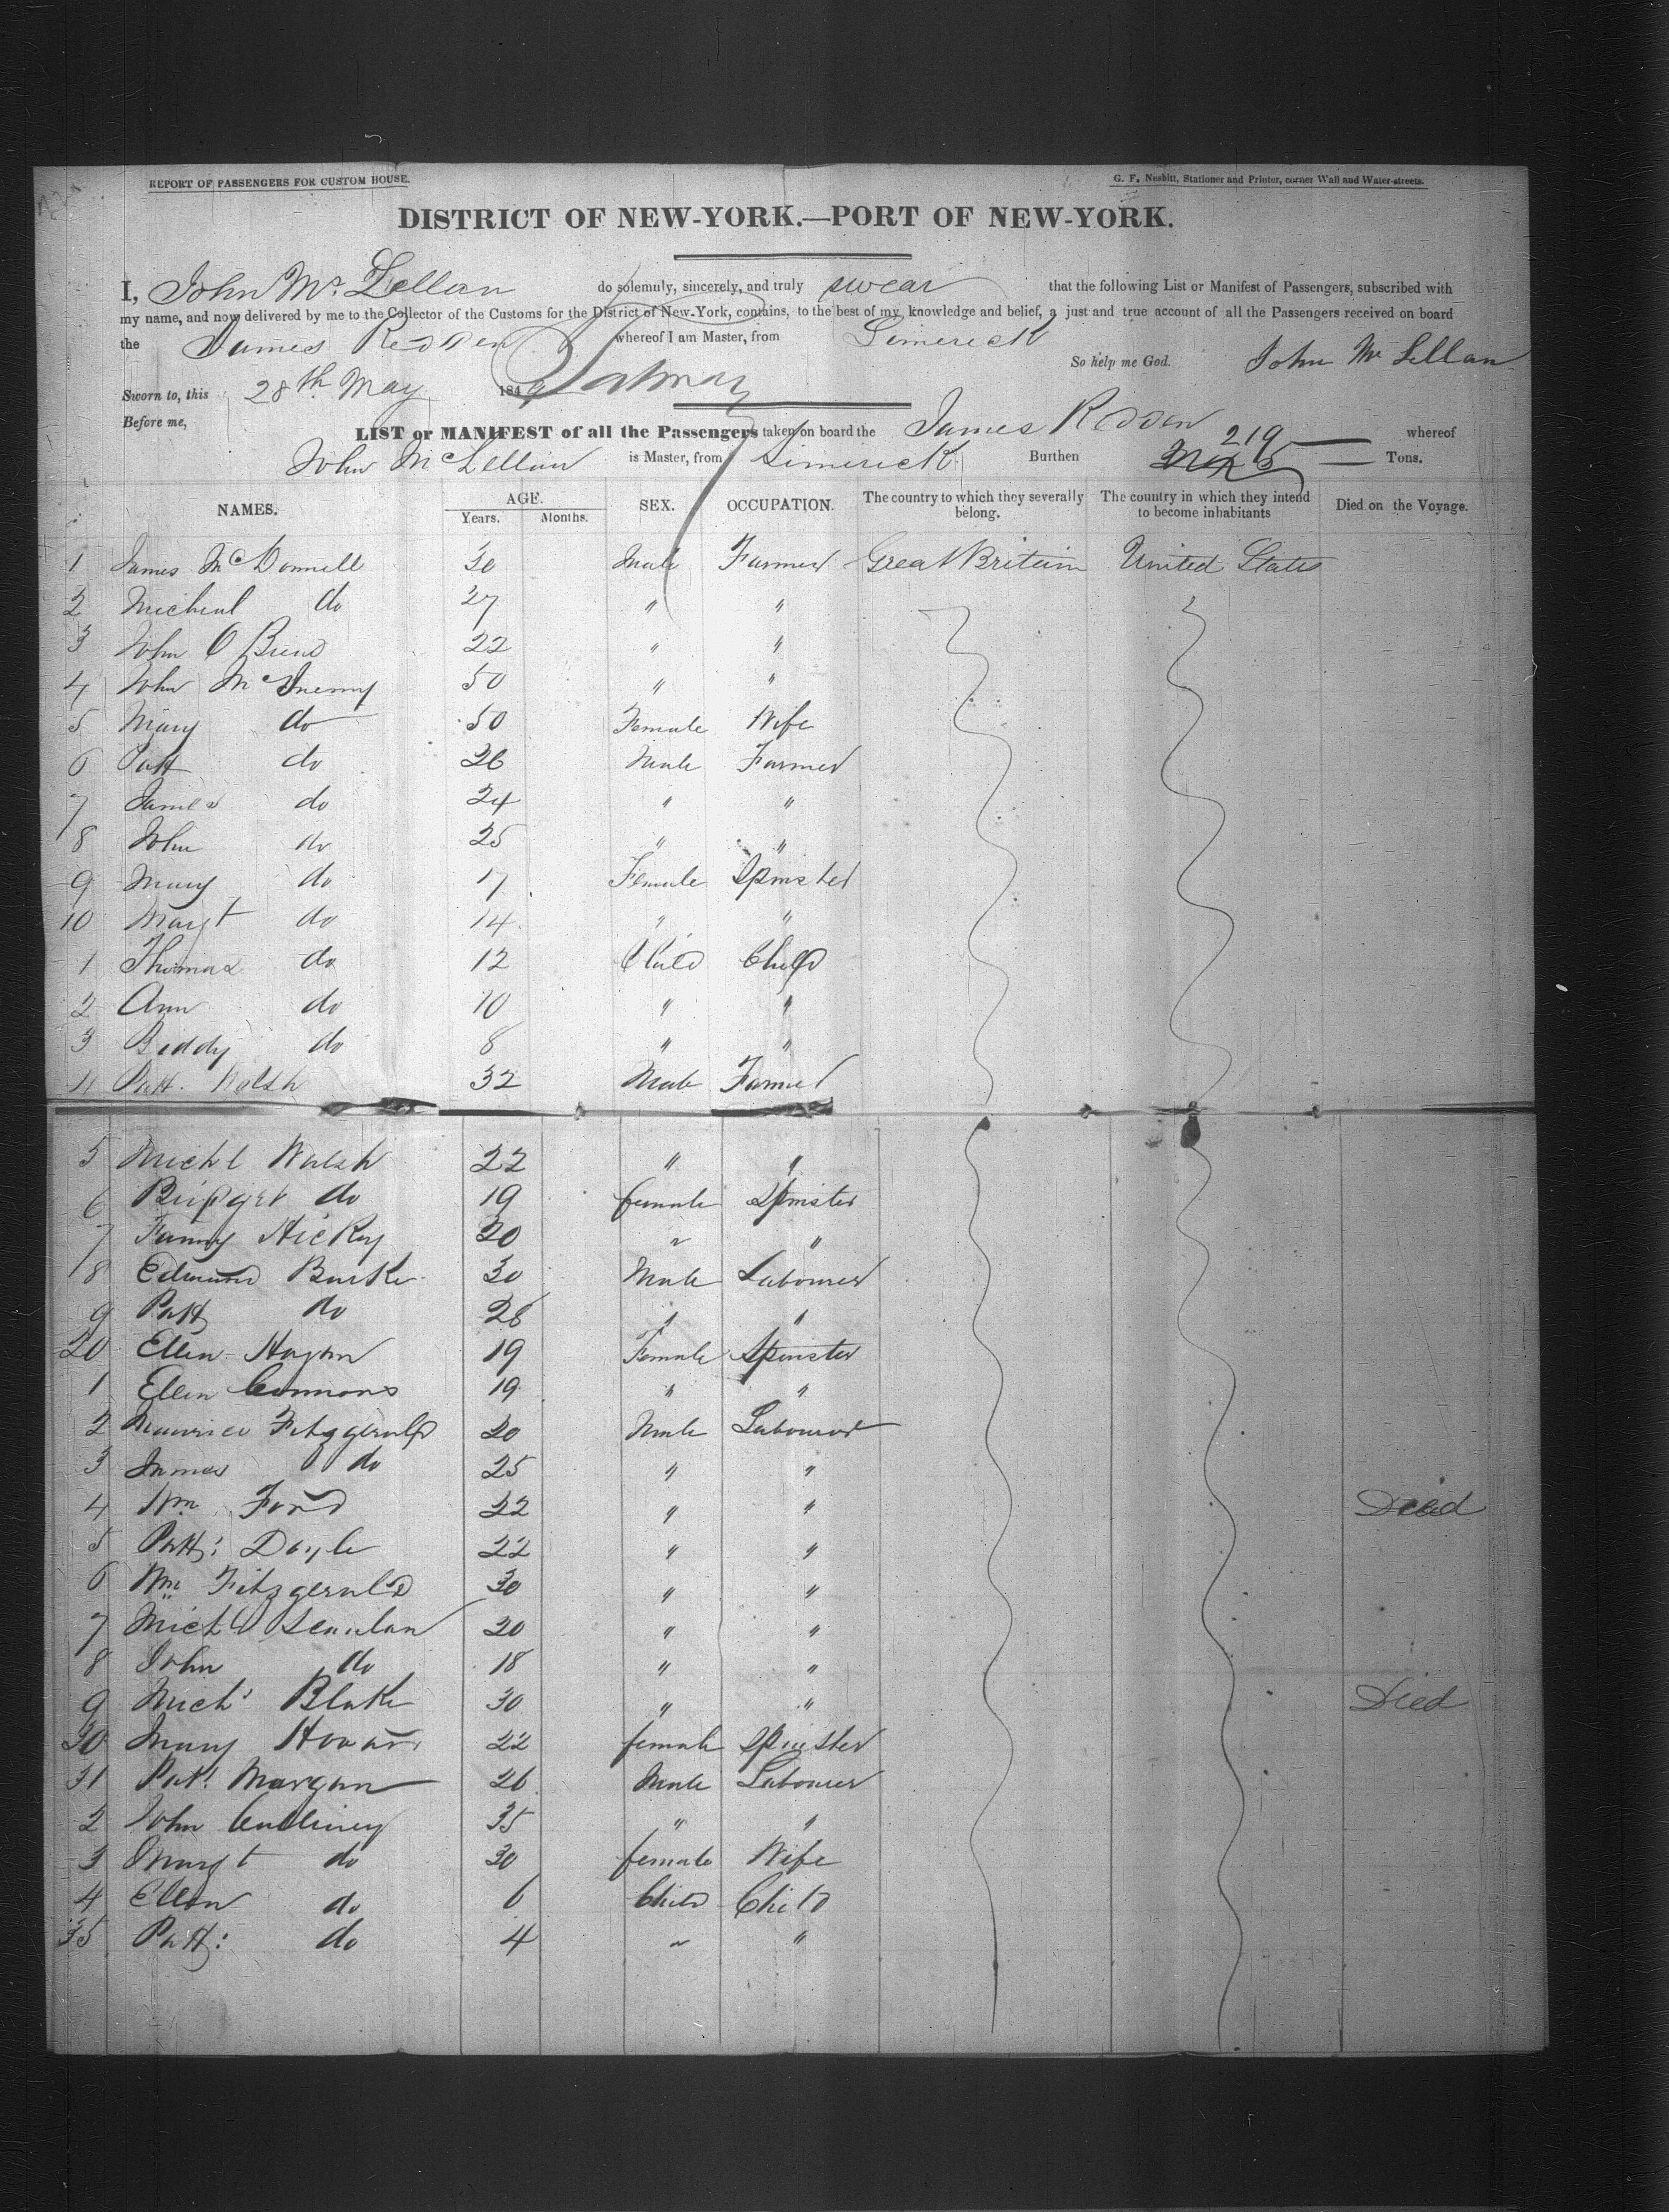 REPORT OF PASSENGERS FOR CUSTOM HOUSE.
G. F. Nesbitt, Stationer and Printer, corner Wall and Water-streets.
DISTRICT OF NEW-YORK.—PORT OF NEW-YORK.
I, John Mc Lellan do solemnly, sincerely, and truly swear that the following List or Manifest of Passengers, subscribed with
my name, and now delivered by me to the Collector of the Customs for the District of New-York, contains, to the best of my knowledge and belief, a just and true account of all the Passengers received on board
the James Redden whereof I am Master, from Limerick
So help me God. John Mc Lellan
Sworn to, this 28th May 184
Before me,
LIST or MANIFEST of all the Passengers taken on board the James Redden whereof
John McLellan is Master, from Limerick Burthen 219 Tons.
NAMES. AGE. SEX. OCCUPATION. The country to which they severally belong. The country in which they intend to become inhabitants Died on the Voyage.
Years. Months.
1 James McDonnell 30 Male Farmer Great Britain United States
2 Micheal do 27 " "
3 John O Brien 22 " "
4 John McInerny 50 " "
5 Mary do 50 Female Wife
6 Patt do 26 Male Farmer
7 James do 24 " "
8 John do 25 " "
9 Mary do 17 Female Spinster
10 Margt do 14 " "
1 Thomas do 12 Child Child
2 Ann do 10 " "
3 Biddy do 8 " "
4 Patt. Walsh 32 Male Farmer
5 Michl Walsh 22 " "
6 Bridget do 19 female Spinster
7 Fanny Hickey 20 " "
18 Edmund Burke 30 Male Labourer
9 Patt do 28 " "
20 Ellen Hogan 19 Female Spinster
1 Ellen Connors 19 " "
2 Maurice Fitzgerald 20 Male Labourer
3 James do 25 " "
4 Wm Ford 22 " " Died
5 Patt: Doyle 22 " "
6 Wm Fitzgerald 30 " "
7 Michl Scanlan 20 " "
8 John do 18 " "
9 Michl Blake 30 " " Died
30 Mary Howard 22 female Spinster
31 Patt Morgan 26 Male Labourer
2 John 35 " "
3 Margt do 30 female Wife
4 Ellen do 6 Child Child
35 Patt: do 4 " "